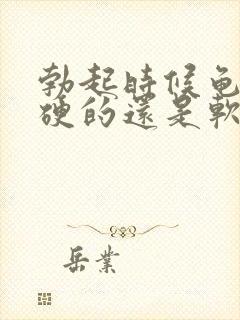 勃起時候龟
硬的還是軟
岳業